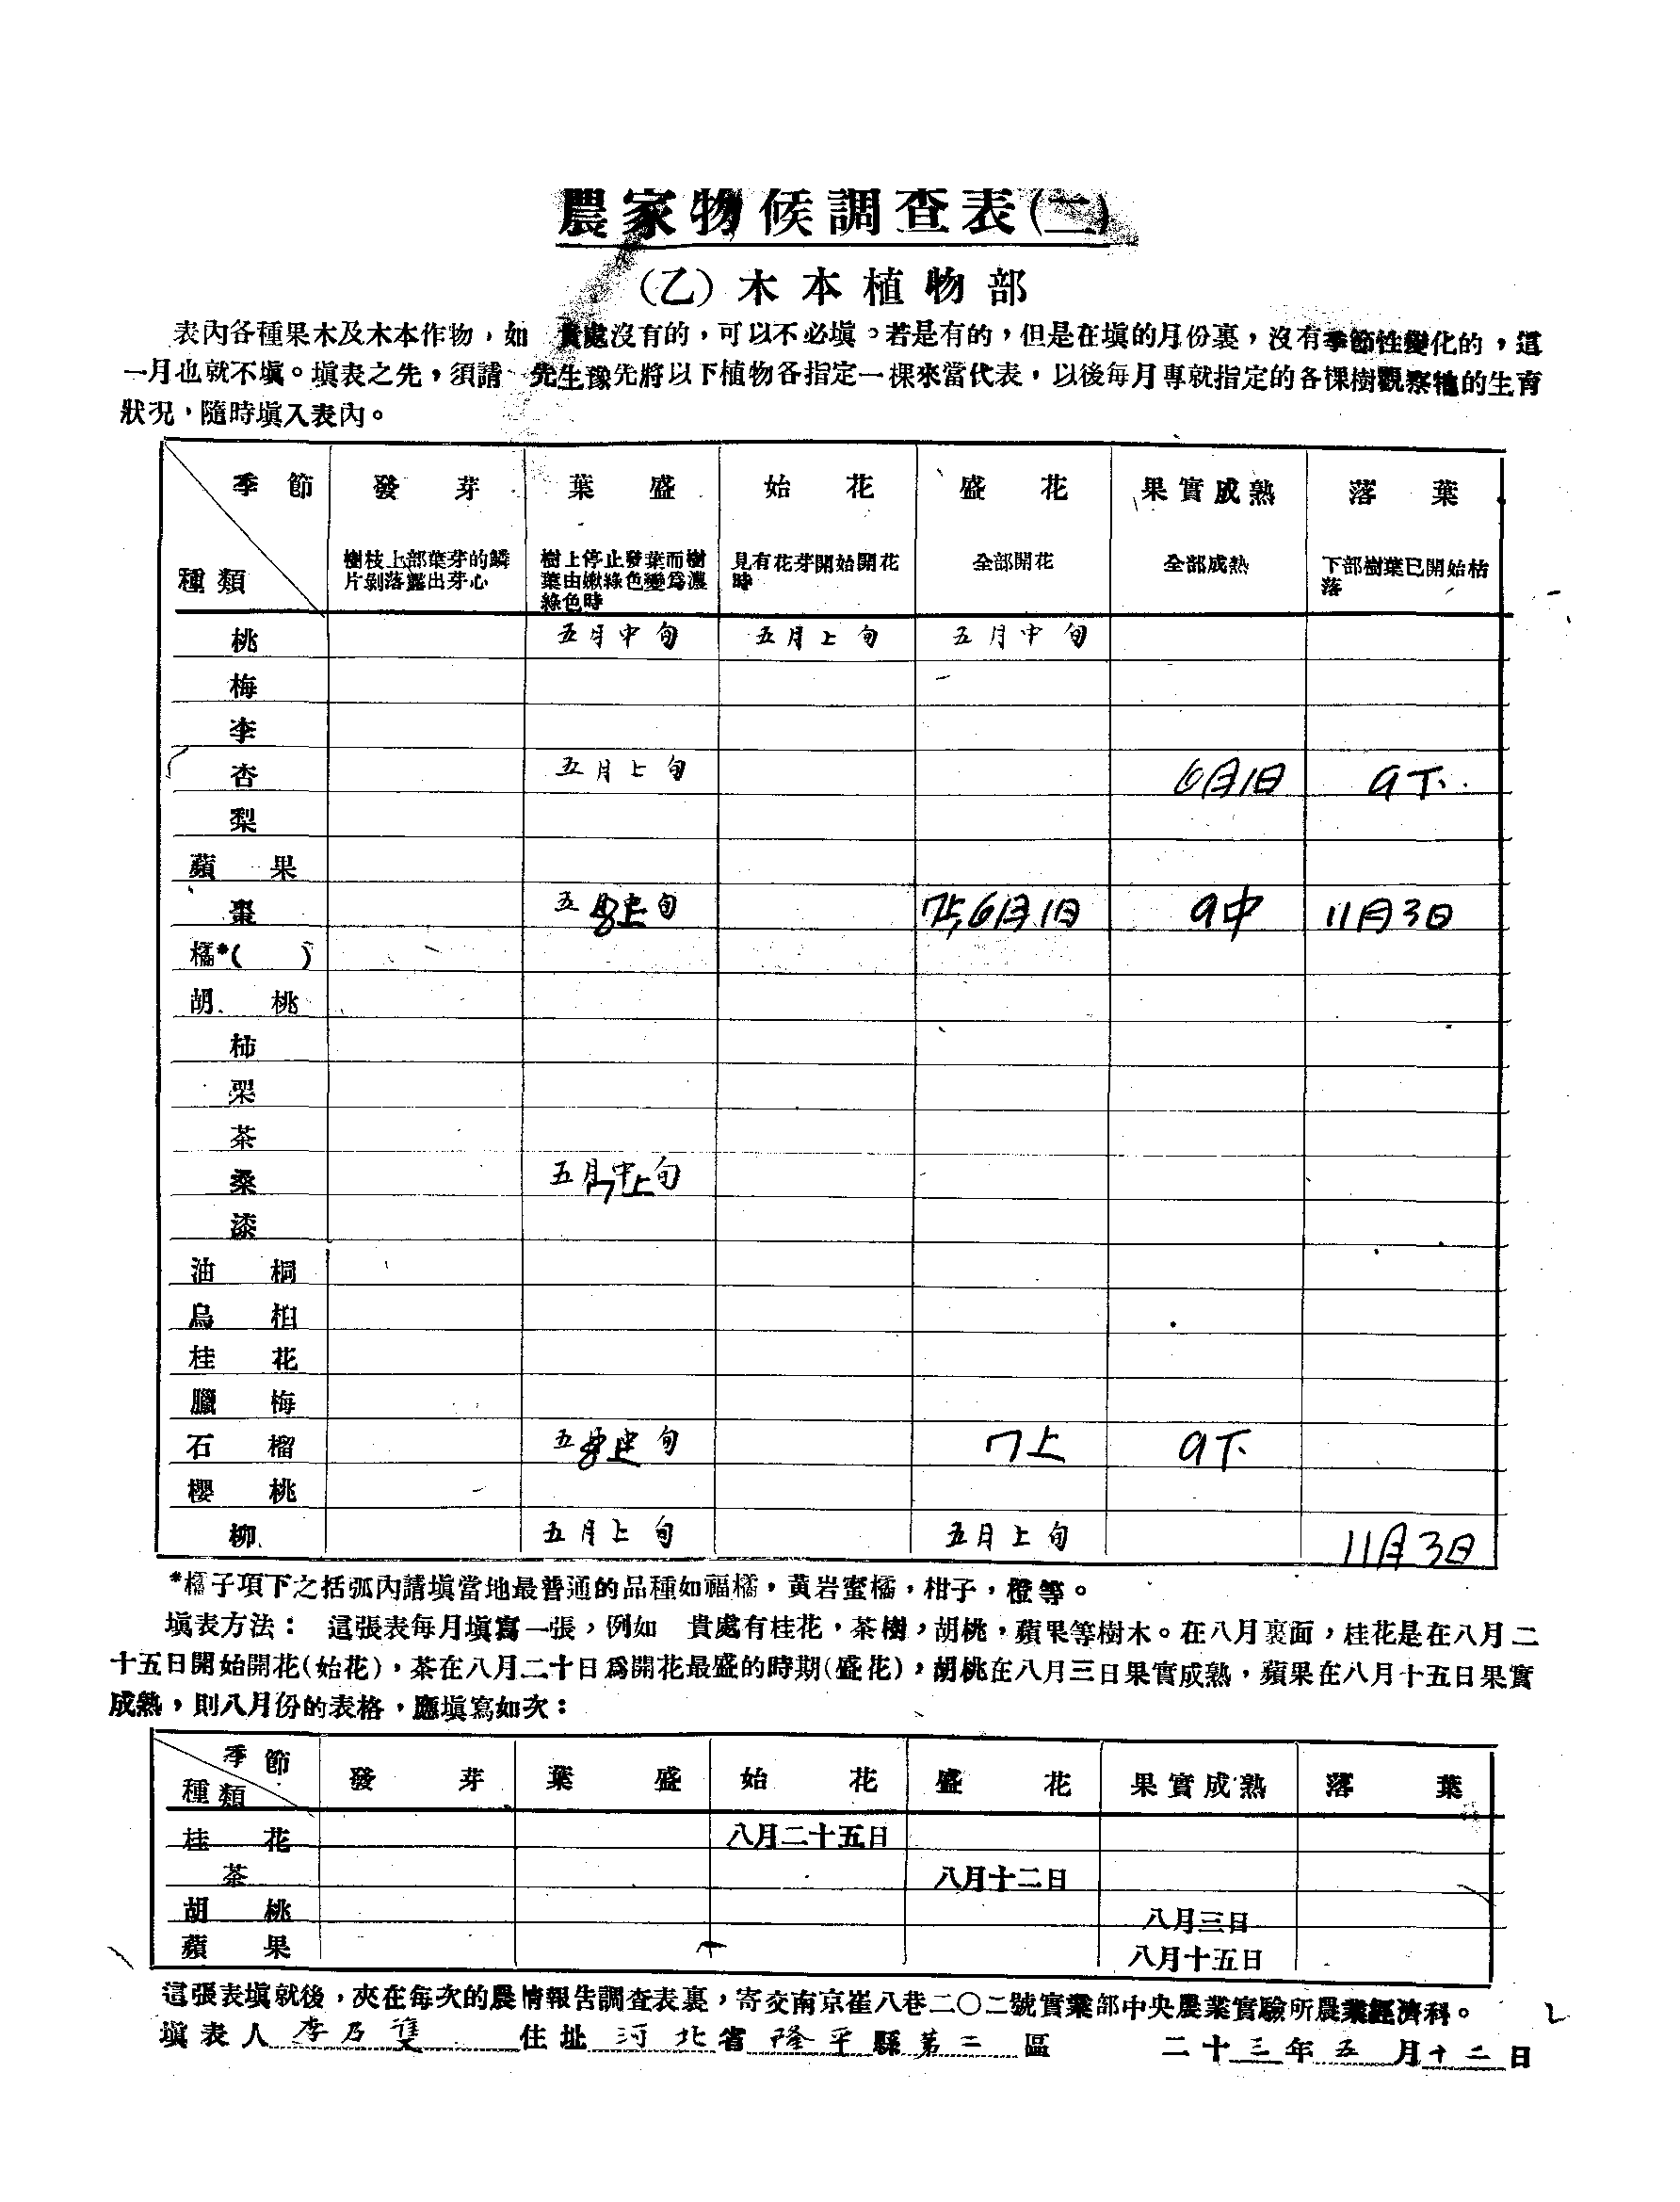 農家物候調查表(二)
(乙)木本植物部
表內各種果木及木本作物，如　貴處沒有的，可以不必塡。若是有的，但是在塡的月份裏，沒有季節性變化的，這
一月也就不塡。塡表之先，須請　先生豫先將以下植物各指定一棵來當代表，以後每月專就指定的各棵樹觀察牠的生育
狀況，隨時塡入表內。
季節　發芽　葉盛　始花　盛花　果實成熟　落葉
種類　樹枝上部葉芽的鱗片剝落露出芽心　樹上停止發葉而樹葉由嫩綠色變爲濃綠色時　見有花芽開始開花時　全部開花　全部成熟　下部樹葉已開始枯落
桃　五月中旬　五月上旬　五月中旬
梅
李
杏　五月上旬　6月1日　9下
梨
蘋果
棗　五月中旬 8上　7上,6月1日　9中　11月3日
橘*(　)
胡桃
柿
栗
茶
桑　五月中旬 7上
漆
油桐
烏桕
桂花
臘梅
石榴　五月中旬 8上　7上　9下
櫻桃
柳　五月上旬　五月上旬　11月3日
*橘子項下之括弧內請塡當地最普通的品種如福橘，黃岩蜜橘，柑子，橙等。
塡表方法：　這張表每月塡寫一張，例如　貴處有桂花，茶樹，胡桃，蘋果等樹木。在八月裏面，桂花是在八月二
十五日開始開花(始花)，茶在八月二十日爲開花最盛的時期(盛花)，胡桃在八月三日果實成熟，蘋果在八月十五日果實
成熟，則八月份的表格，應塡寫如次：
季節　種類　發芽　葉盛　始花　盛花　果實成熟　落葉
桂花　八月二十五日
茶　八月十二日
胡桃　八月三日
蘋果　八月十五日
這張表塡就後，夾在每次的農情報告調查表裏，寄交南京崔八巷二〇二號實業部中央農業實驗所農業經濟科。
塡表人 李乃隻　住址 河北省隆平縣第二區　二十三年五月十二日